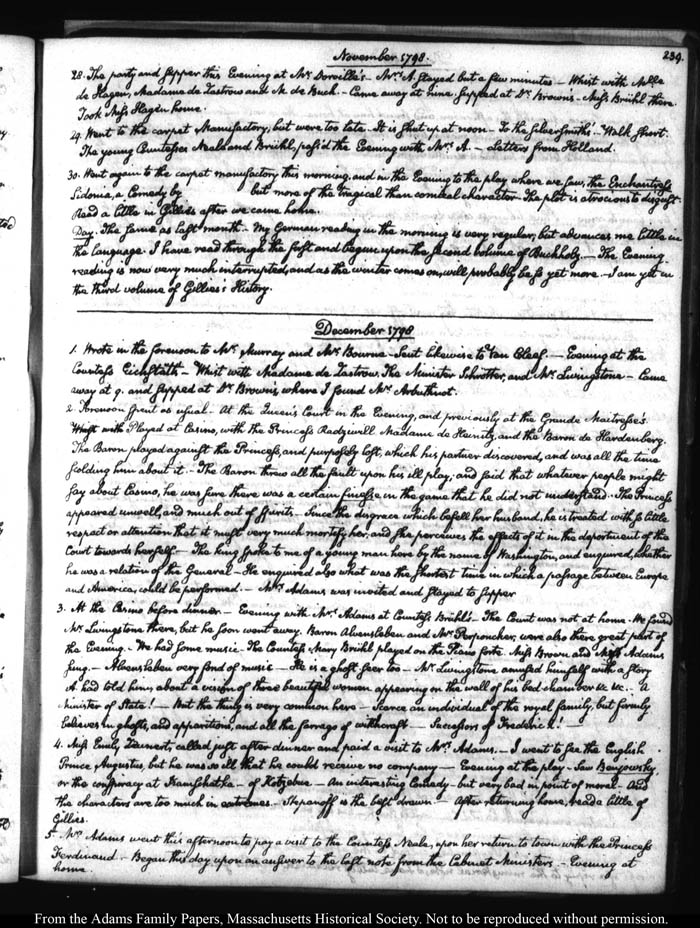 November 1798.
239.
28. The party and supper this Evening at Mr. Dorville's — Mrs. A. stayed but a few minutes — Whist with Mlle
de Hagen, Madame de Tastrow and M. de Buch — Came away at nine. Supped at Dr. Brown's — Miss Brühl there
Took Miss Hagen home.
29. Went to the carpet Manufactory, but were too late. It is shut up at noon — To the Silversmith's — Walk short.
The young Countesses Neale and Brühl, pass'd the Evening with Mrs. A — Letters from Holland.
30. Went again to the carpet manufactory this morning, and in the Evening to the play where we saw, the Enchantress
Sidonia, a Comedy by but more of the tragical than comical character. The plot is atrocious to disgust.
Read a little in Gillies after we came home.
Day. The same as last month — My German reading in the morning is very regular, but advances me little in
the language. I have read through the first and begun upon the second volume of Buchholz. — The Evening
reading is now very much interrupted, and as the winter comes on, will probably be so yet more — I am yet in
the third volume of Gillies's History.
December 1798
1. Wrote in the forenoon to Mr. Murray and Mr. Bourne — Sent likewise to Van Cleef. — Evening at the
Countess Eichstäth — Whist with Madame de Tastrow, The Minister Schrötter, and Mr. Livingstone — Came
away at 9. and supped at Dr. Brown's, where I found Mr. Arbuthnot.
2. Forenoon spent as usual. At the Queen's Court in the Evening, and previously at the Grande Maitresse's
Whist with Played at Casino, with the Princess Radziwill Madame de Heinitz, and the Baron de Hardenberg.
The Baron played against the Princess, and purposely lost, which his partner discovered, and was all the time
scolding him about it. — The Baron threw all the fault upon his ill play, and said that whatever people might
say about Casino, he was sure there was a certain finesse in the game that he did not understand. The Princess
appeared unwell, and much out of spirits — Since the disgrace which befell her husband, he is treated with so little
respect or attention that it must very much mortify her, and she perceives the effects of it in the deportment of the
Court towards herself — The king spoke to me of a young man here by the name of Washington, and enquired, whether
he was a relation of the General — He enquired also what was the shortest time in which a passage between Europe
and America, could be performed. — Mrs. Adams was invited and stayed to supper
3. At the Casino before dinner — Evening with Mrs. Adams at Countess Brühl's. The Court was not at home. We found
Mr. Livingstone there, but he soon went away. Baron Alvensleben and Mr. Perponcher, were also there great part of
the Evening. We had some music. The Countess Mary Brühl played on the Piano forte. Miss Brown and Adams
sung. — Alvensleben very fond of music — He is a ghost seer too — Mr. Livingstone amused himself with a story
A. had told him, about a vision of three beautiful women appearing on the wall of his bed chamber &c &c. — A
Minister of State! — But the thing is very common here — Scarce an individual of the royal family, but firmly
believes in ghosts, and apparitions, and all the farrago of witchcraft — Successors of Frederick!
4. Miss Emily called just after dinner and paid a visit to Mrs. Adams. — I went to see the English
Prince, Augustus, but he was so ill that he could receive no company — Evening at the play — Saw Benyowsky,
or the conspiracy at Kamschatka — of Kotzebue — An interesting Comedy — but very bad in point of moral — And
the characters are too much in extremes — Stepanoff is the best drawn — After returning home, read a little of
Gillies.
5. Mrs. Adams went this afternoon to pay a visit to the Countess Neale, upon her return to town with the Princess
Ferdinand — Began this day upon an answer to the last note from the Cabinet Ministers. — Evening at
home.
From the Adams Family Papers, Massachusetts Historical Society. Not to be reproduced without permission.